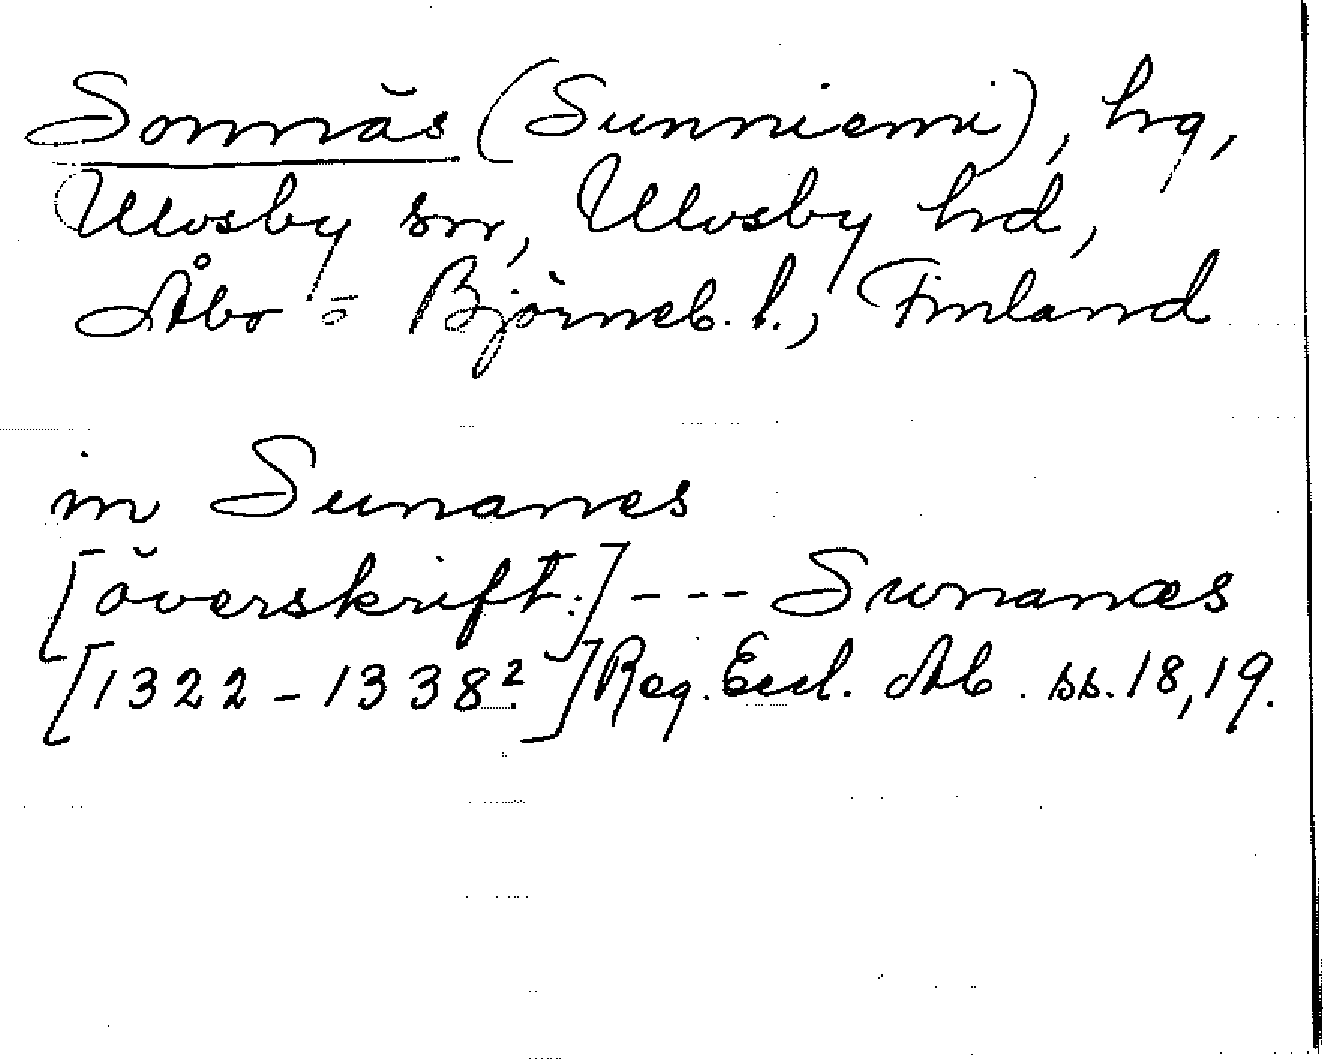 Sonnäs (Sunniemi), hg,
Ulvsby sn, Ulvsby hd,
Åbo - Björneb. l., Finland
in Sunanes
[överskift:] --- Sunanæs
[1322-1338?] Reg. Eccl. Ab. ss. 18, 19.